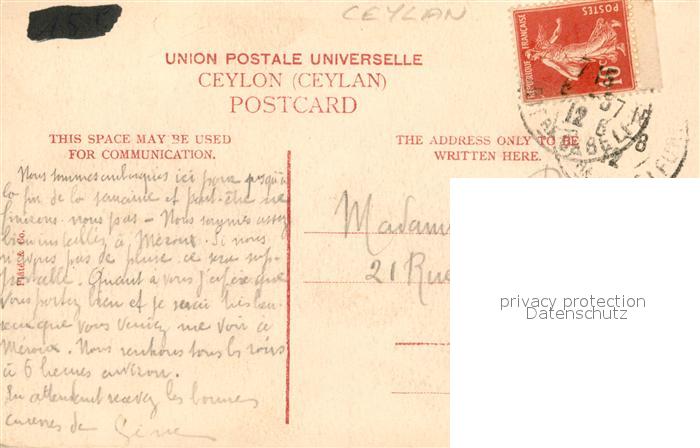 CEYLAN
POSTES
REPUBLIQUE FRANÇAISE
10
UNION POSTALE UNIVERSELLE
CEYLON (CEYLAN)
POSTCARD
THIS SPACE MAY BE USED
FOR COMMUNICATION.
THE ADDRESS ONLY TO BE
WRITTEN HERE.
Nous sommes ici pour jusqu'à
la fin de la semaine et peut-être ne
finirons nous pas – Nous sommes assez
bien installés à Méroux. Si nous
n'avons pas de pluie ce sera sup-
portable. Quant à vous j'espère que
vous portez bien et je serai très heu-
que vous veniez me voir à
Méroux. Nous rentrons tous les soirs
à 6 heures environ.
En attendant recevez les bonnes
de
Plâté & Co.
Madame
21 Rue
privacy protection
Datenschutz